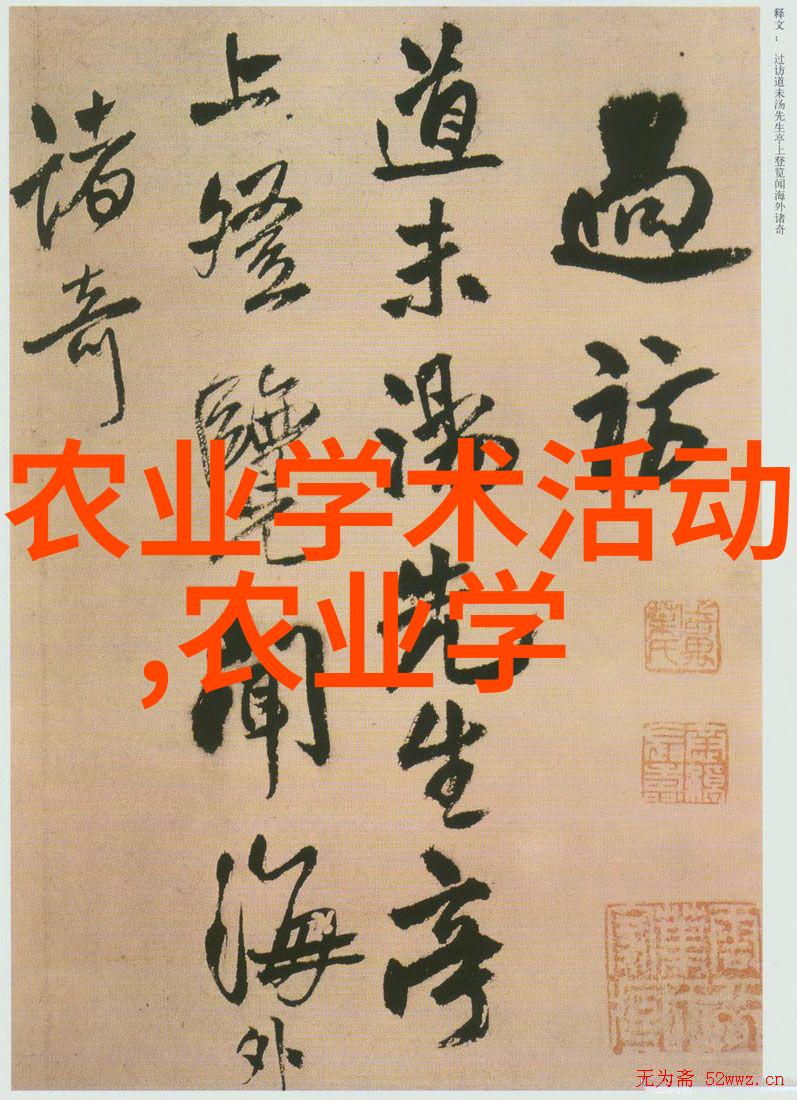 释文： 过访道未汤先生亭上登览闻海外诸奇
過訪
道未湯先生亭
上登覽聞海外
諸奇
农业学术活动
,农业学
无为斋 52wwz.cn